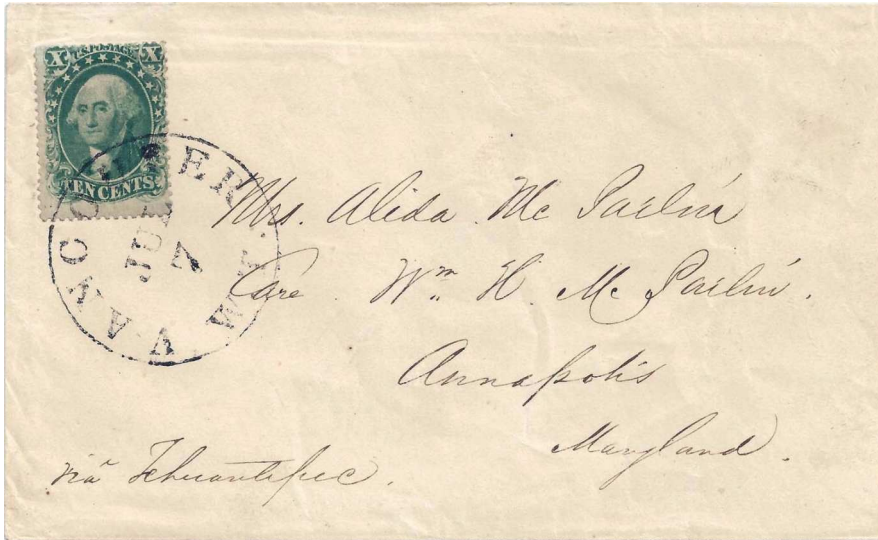 X U.S. POSTAGE X
TEN CENTS
VANCOUVER W.T.
JUL
7
Mrs. Alida Mc Parlin
Care. Wm. H. Mc Parlin.
Annapolis
Maryland.
viâ Tehuantepec.